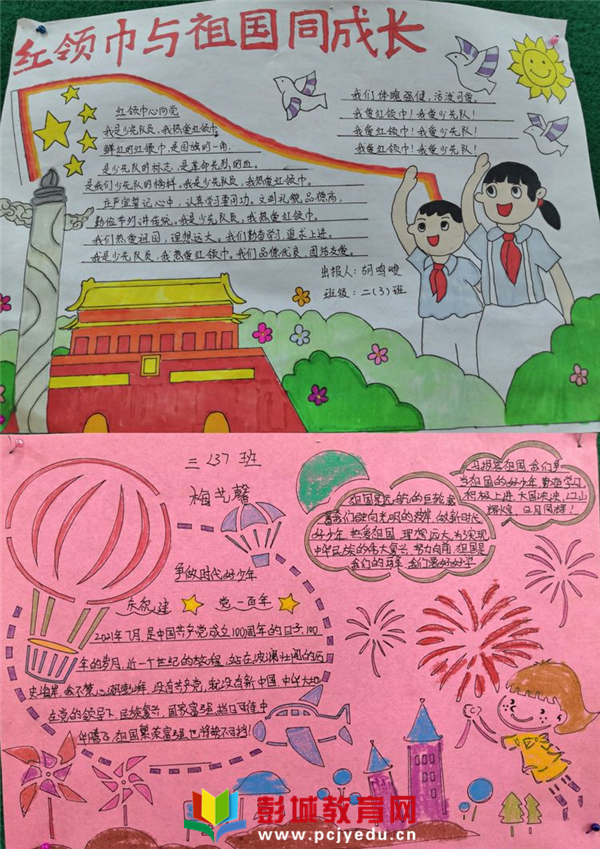 红领巾与祖国同成长
红领巾心向党
我是少先队员,我热爱红领巾
鲜红的红领巾,是国旗的一角,
是少先队的标志,是革命先烈的血。
是我们少先队的榜样,我是少先队员,我热爱红领巾。
庄严宣誓记心中,认真学习要用功,文明礼貌品德高,
勤俭节约讲传统。我是少先队员,我热爱红领巾。
我们热爱祖国,理想远大。我们勤奋学习,追求上进。
我是少先队员,我热爱红领巾。我们品德优良,团结友爱。
我们体魄强健,活泼可爱。
我爱红领巾!我爱少先队!
我爱红领巾!我爱少先队!
我爱红领巾!我爱少先队!
出报人:胡鸣峻
班级:二(3)班
三 班
梅艺馨
争做时代好少年
庆祝建党一百年
2021年7月,是中国共产党成立100周年的日子,100
年的岁月,近一个世纪的旅程,站在波澜壮阔的历
没有共产党,就没有新中国,中华大地
在党的领导下,民族复兴,国家富强,指日可待,中
年腾飞,祖国繁荣富强也将势不可挡!
祖国是民航的巨轮,载
着我们驶向光明的彼岸,做新时代
好少年,热爱祖国,理想远大,为实现
中华民族的伟大复兴,努力向前,祖国是
我们的骄傲,我们要好好学
为报答祖国,我们争
当祖国的好少年,勤奋学习
积极上进,大国泱泱,江山
日月同辉!
彭城教育网
www.pcjyedu.cn